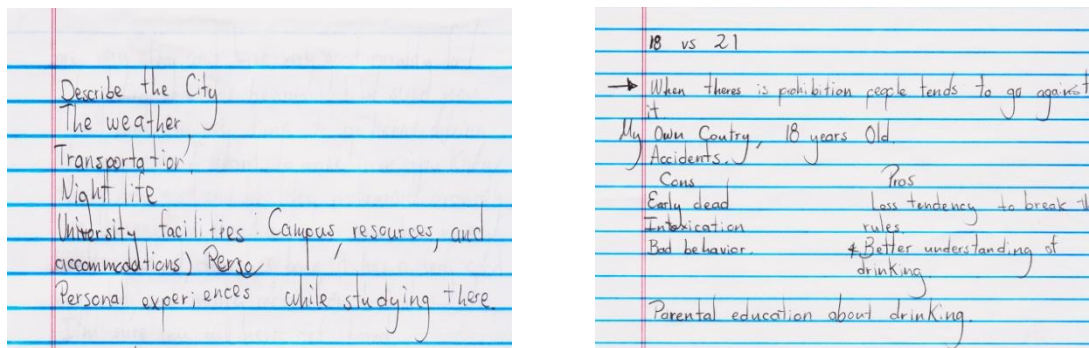 Describe the City
The weather,
Transportation,
Night life
University facilities: Campus, resources, and
accommodations) Perso
Personal experiences while studying there.
18 vs 21
→ When theres is prohibition people tends to go against
it.
My Own Coutry, 18 years Old.
Accidents.
Cons Pros
Early dead Loss tendency to break th
Intoxication rules.
Bad behavior. * Better understanding of
drinking.
Parental education about drinking.